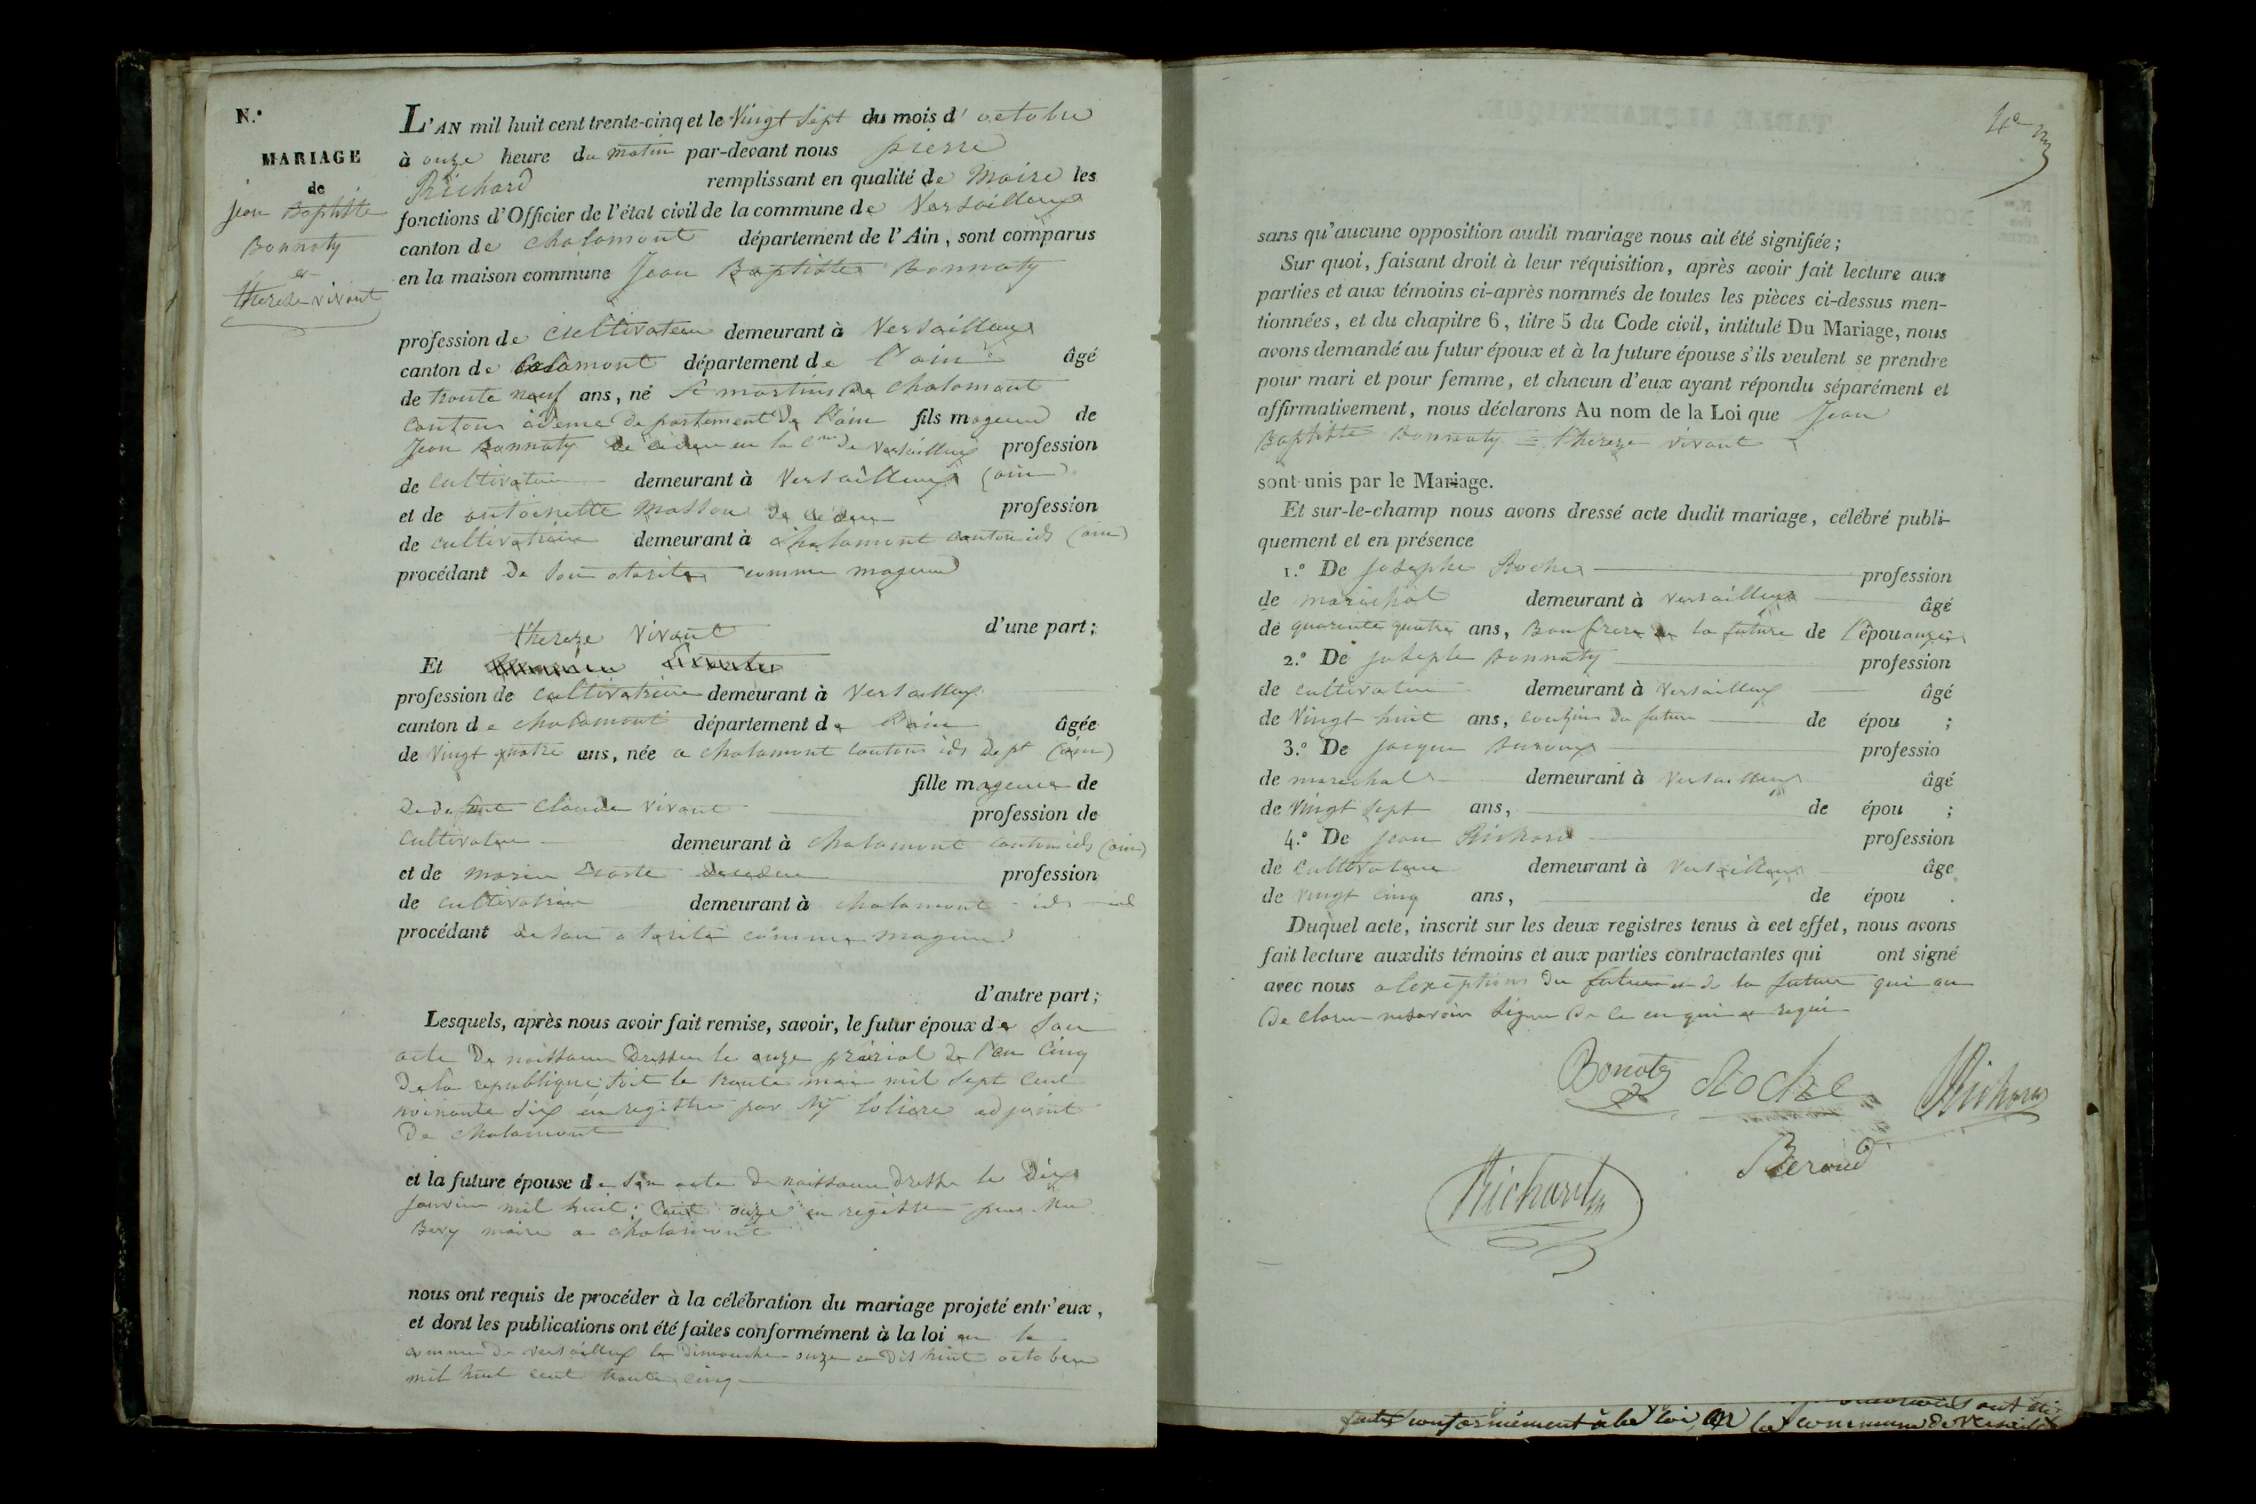 N.°
MARIAGE
de
jean Baptiste
Bonnaty
et
thereze vivant
L'AN mil huit cent trente-cinq et le vingt sept du mois d' octobre
à onze heure du matin par-devant nous pierre
Richard remplissant en qualité de Maire les
fonctions d'Officier de l'état civil de la commune de Versailleux
canton de chalamont département de l'Ain, sont comparus
en la maison commune Jean Baptiste Bonnaty
profession de cultivateur demeurant à Versailleux
canton de Calamont département de l'ain âgé
de trante neuf ans, né St martin de chalamont
canton departement de l'ain fils mageur de
Jean Bonnaty en la Cne de Versailleux profession
de cultivateur demeurant à Versailleux (ain)
et de antoinette Masson de profession
de cultivatrice demeurant à chalamont canton ids (ain)
procédant de son otorite comme mageur
d'une part;
thereze vivant
Et
profession de cultivatrice demeurant à Versailleux
canton de chalamont département de l'ain âgée
de vingt quatre ans, née a chalamont canton ids dept (ain)
fille mageure de
claude vivant profession de
cultivateur demeurant à chalamont canton ids (ain)
et de marie profession
de cultivatrice demeurant à chalamont ids
procédant de son otorité comme mageure
d'autre part;
Lesquels, après nous avoir fait remise, savoir, le futur époux de son
acte de naissance dressee le onze prairial de l'an cinq
de la republique soit le trante mai mil sept cent
nonante six enregistre par Mr adjoint
de chalamont
et la future épouse de son acte de naissance dresse le dix
janvier mil huit cent onze enregistre par
Bery maire a chalamont
nous ont requis de procéder à la célébration du mariage projeté entr'eux,
et dont les publications ont été faites conformément à la loi en la
commune de versailleux les dimanche onze et dis huit octobre
mil huit cent trante cinq
sans qu'aucune opposition audit mariage nous ait été signifiée;
Sur quoi, faisant droit à leur réquisition, après avoir fait lecture aux
parties et aux témoins ci-après nommés de toutes les pièces ci-dessus men-
tionnées, et du chapitre 6, titre 5 du Code civil, intitulé Du Mariage, nous
avons demandé au futur époux et à la future épouse s'ils veulent se prendre
pour mari et pour femme, et chacun d'eux ayant répondu séparément et
affirmativement, nous déclarons Au nom de la Loi que Jean
Baptiste Bonnaty = thereze vivant
sont unis par le Mariage.
Et sur-le-champ nous avons dressé acte dudit mariage, célébré publi-
quement et en présence
1.° De josephe Roche profession
de marichal demeurant à versailleux âgé
de quarente quatre ans, Bau frere de la future de l'épou
2.° De joseph Bonnaty profession
de cultivateur demeurant à Versailleux âgé
de vingt huit ans, couzin du futur de épou ;
3.° De jacque profession
de marechal demeurant à Versailleux âgé
de vingt sept ans, de épou ;
4.° De jean Richard profession
de cultivateur demeurant à Versailleux âge
de vingt cinq ans, de épou .
Duquel acte, inscrit sur les deux registres tenus à cet effet, nous avons
fait lecture auxdits témoins et aux parties contractantes qui ont signé
avec nous alexeption du futur et de la future qui on
de clarer ne savoir signer de ce en qui et requi
Bonoty Roche Richard
Beroud
Richard
faites conformément à la loi, en la commune de versailleux